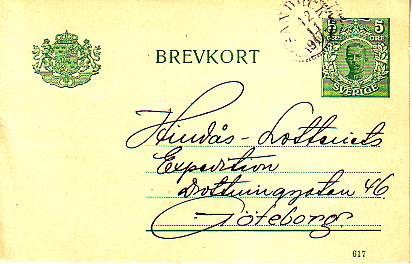 BREVKORT
5 5
ÖRE
SVERIGE
12
Hindås-Lotteriets
Expedition
Drottninggatan 46
Göteborg.
617